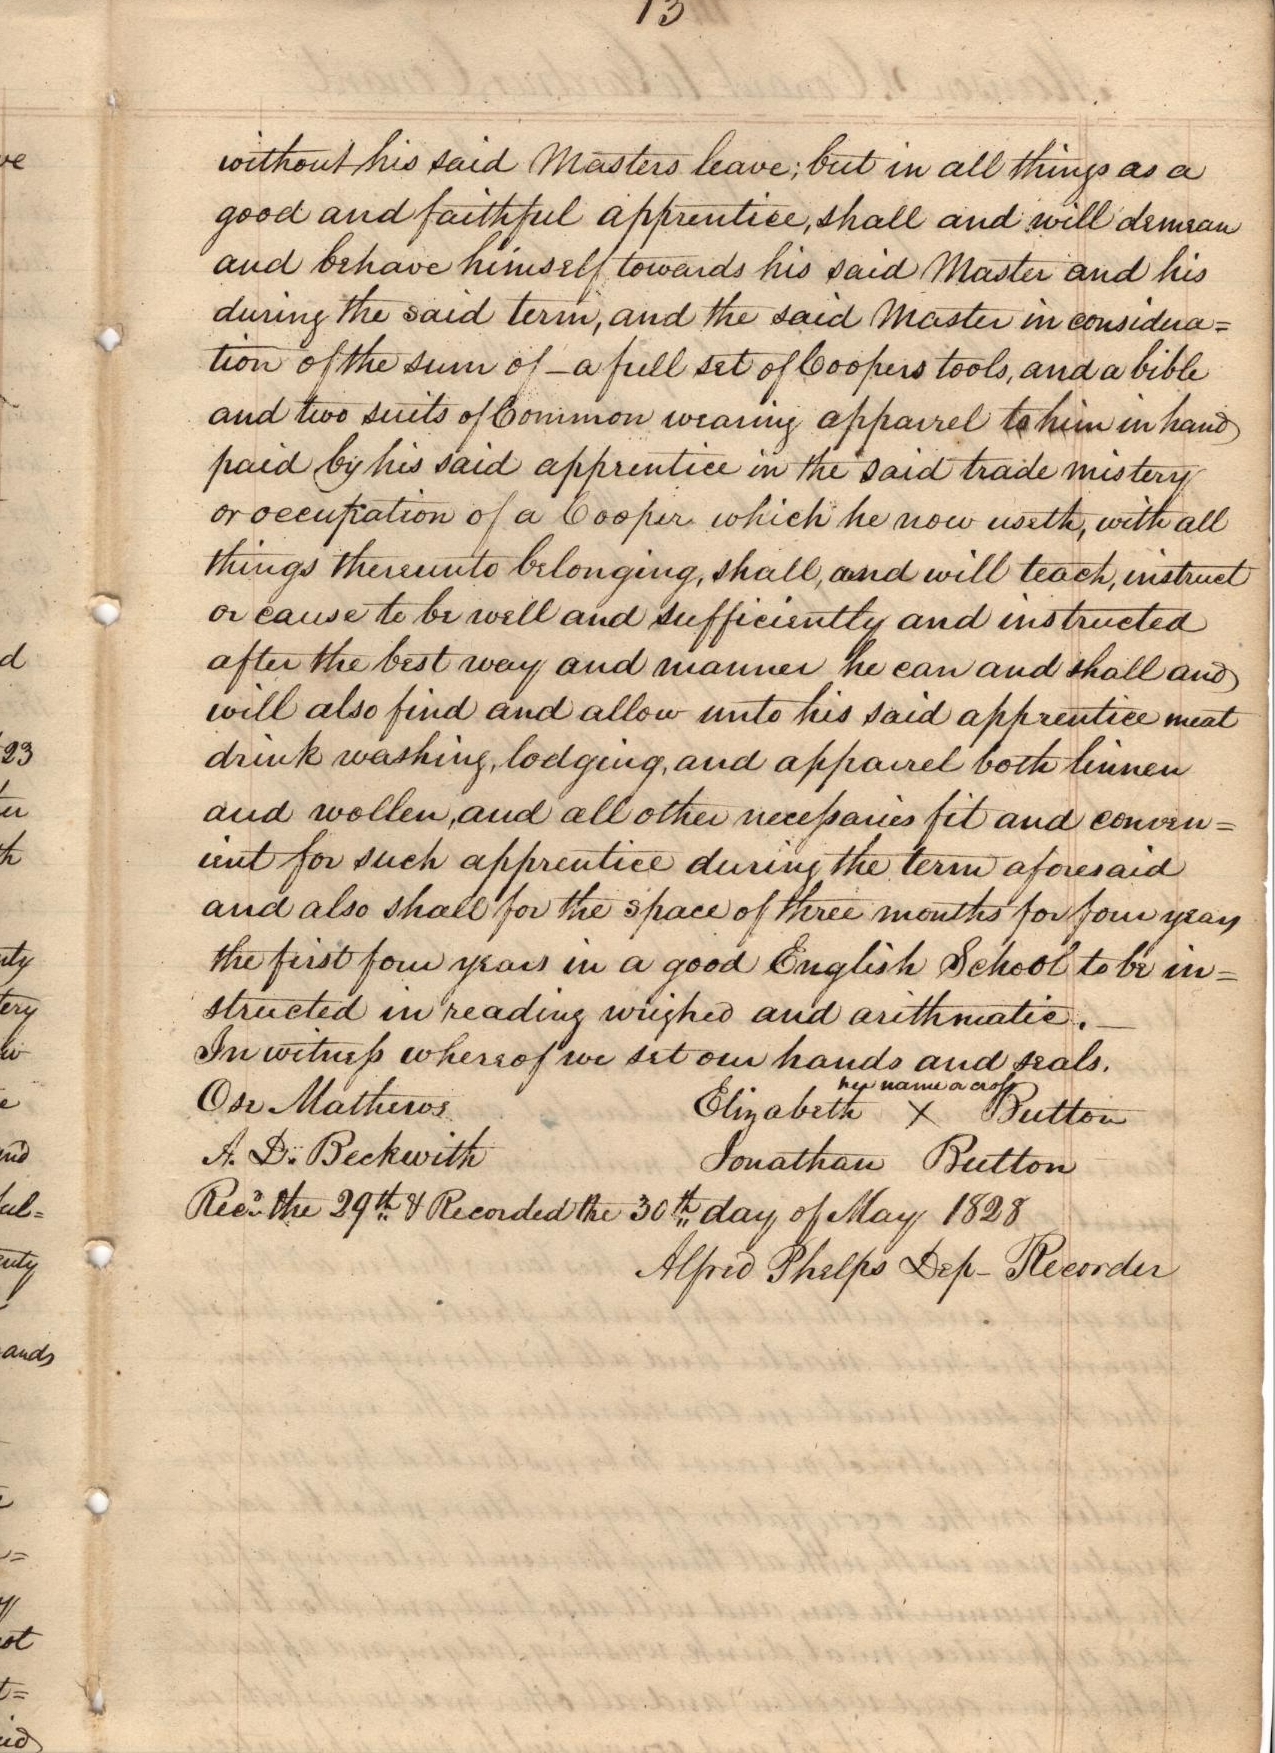 13
without his said Masters leave; but in all things as a
good and faithful apprentice, shall and will demean
and behave himself towards his said Master and his
during the said term, and the said Master in considera=
tion of the sum of – a full set of Coopers tools, and a bible
and two suits of Common wearing apparrel to him in hand
paid by his said apprentice in the said trade mistery
or occupation of a Cooper which he now useth, with all
things thereunto belonging, shall, and will teach, instruct
or cause to be well and sufficiently and instructed
after the best way and manner he can and shall and
will also find and allow unto his said apprentice meat
drink washing, lodging, and apparel both linnen
and wollen, and all other necessaries fit and conven=
ient for such apprentice during the term aforesaid
and also shall for the space of three months for four years
the first four years in a good English School to be in=
structed in reading weighed and arithmatic. —
In witness whereof we set our hands and seals.
her name a cross
Ose Mathews Elizabeth X Button
A. D. Beckwith Jonathan Button
Rec.d the 29th & Recorded the 30th day of May 1828
Alfred Phelps Dep– Recorder